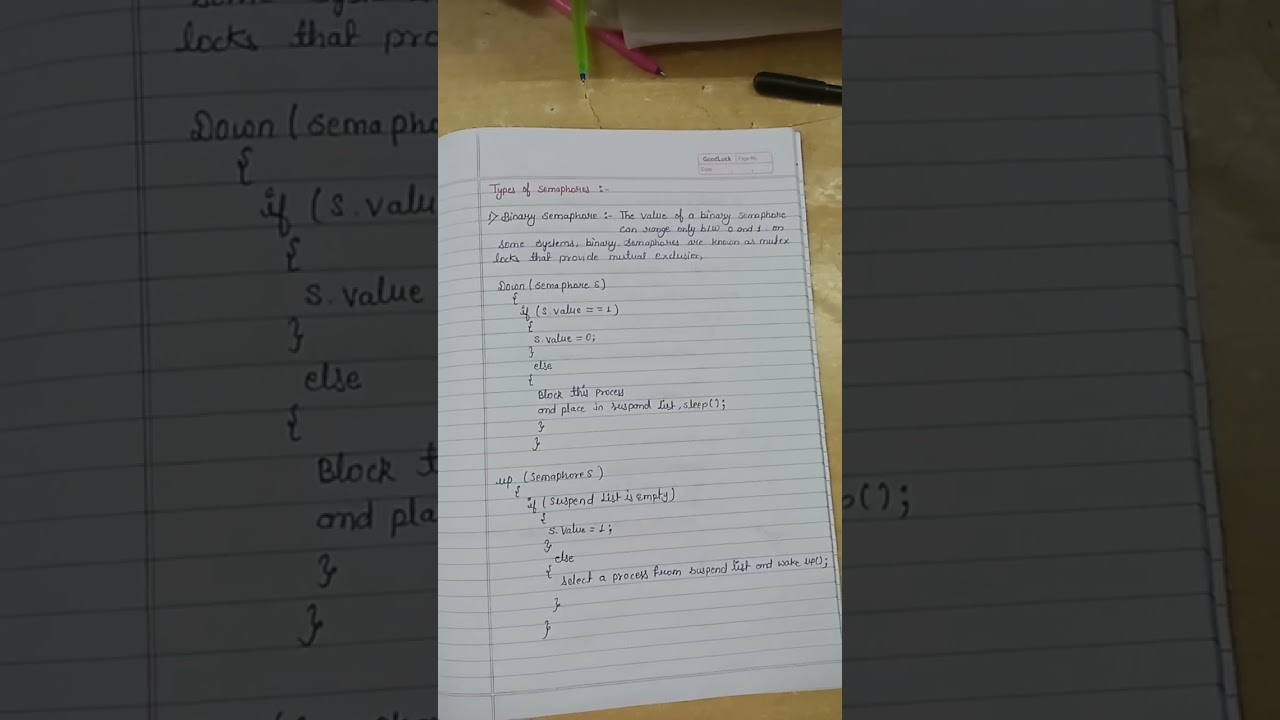 GoodLuck Page No.
Date
Types of Semaphores :-
1) Binary Semaphore :- The value of a binary semaphore
can range only b/w 0 and 1. on
some systems, binary semaphores are known as mutex
locks that provide mutual exclusion,
Down (semaphore s)
{
if (s.value == 1)
{
s.value = 0;
}
else
{
Block this process
and place in suspend list, sleep();
}
}
up (semaphore s)
{
if (suspend list is empty)
{
s.value = 1;
}
else
{
select a process from suspend list and wake up();
}
}